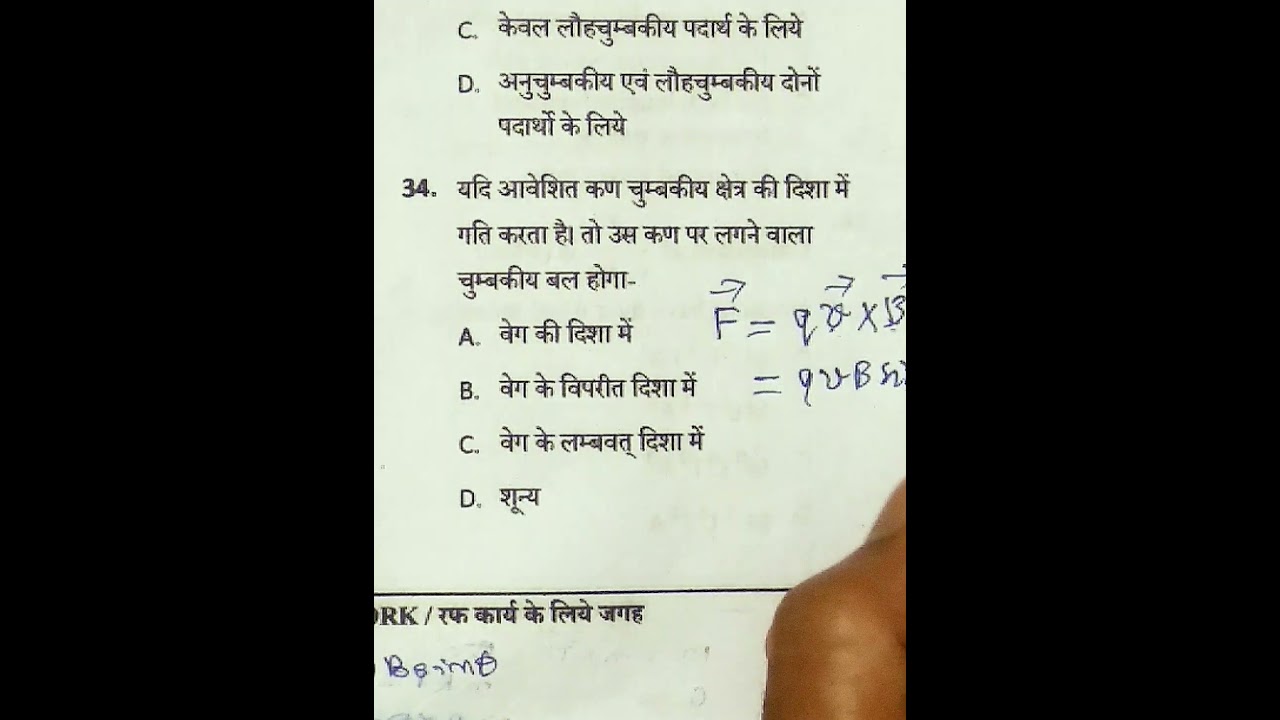 C. केवल लौहचुम्बकीय पदार्थ के लिये
D. अनुचुम्बकीय एवं लौहचुम्बकीय दोनों
पदार्थो के लिये
34. यदि आवेशित कण चुम्बकीय क्षेत्र की दिशा में
गति करता है। तो उस कण पर लगने वाला
चुम्बकीय बल होगा-
A. वेग की दिशा में
F = qv × B
B. वेग के विपरीत दिशा में
= qvB
C. वेग के लम्बवत् दिशा में
D. शून्य
ORK / रफ कार्य के लिये जगह
B sinθ